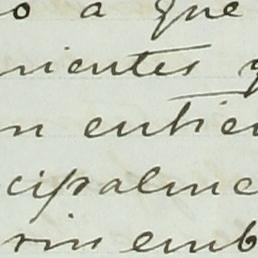 o a que
nientes y
n entien
cipalme
rin emb